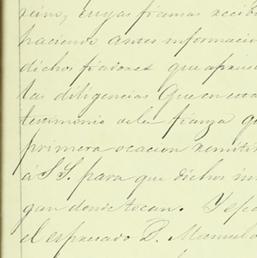 reino, cuyas firmas recib
haciendo antes informacio
dichos fiadores que apruev
las diligencias que en esta
testimonio de la fianza q
primera ocacion remitir
á SS. para que dichos
gan donde tocan. Y es
el espresado D. Manuel